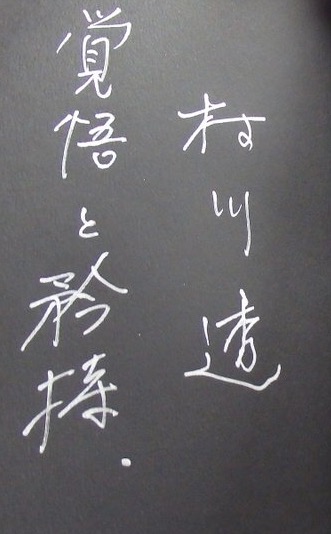 村川透
覚悟と矜持.